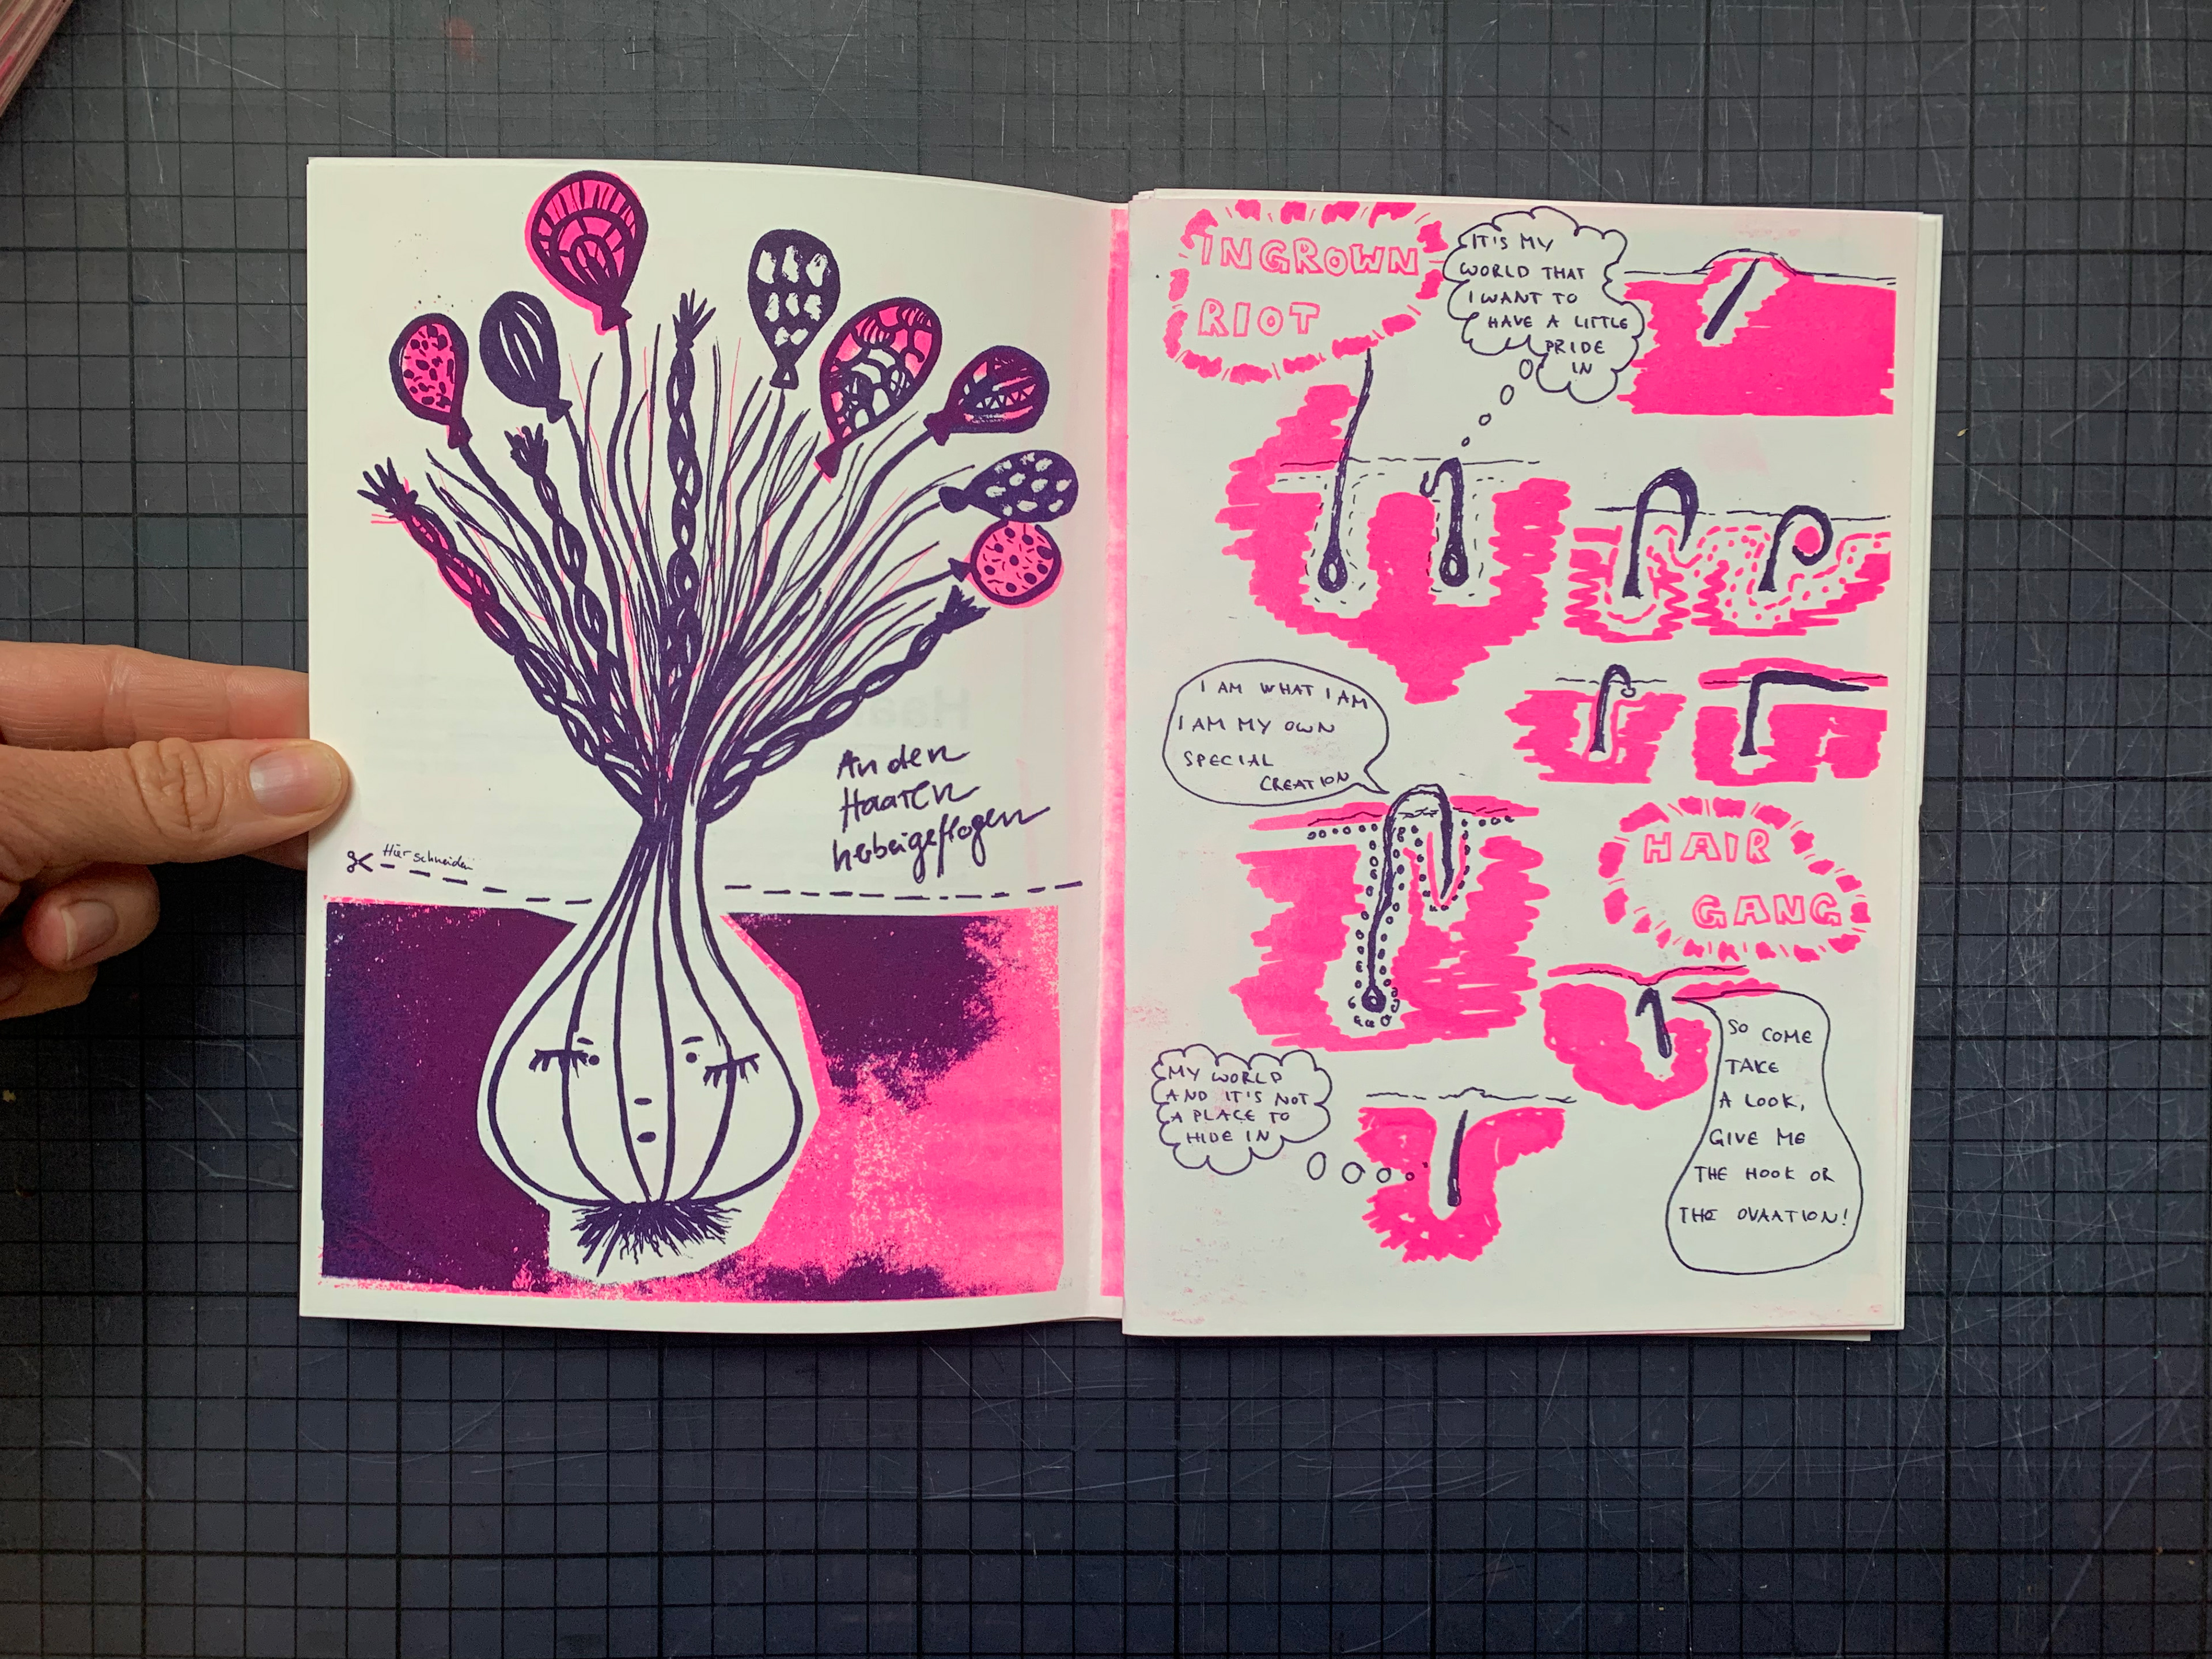 An den
Haaren
herbeigeflogen
Hier schneiden
INGROWN
RIOT
IT'S MY
WORLD THAT
I WANT TO
HAVE A LITTLE
PRIDE
IN
I AM WHAT I AM
I AM MY OWN
SPECIAL
CREATION
HAIR
GANG
SO COME
TAKE
A LOOK,
GIVE ME
THE HOOK OR
THE OVAATION!
MY WORLD
AND IT'S NOT
A PLACE TO
HIDE IN